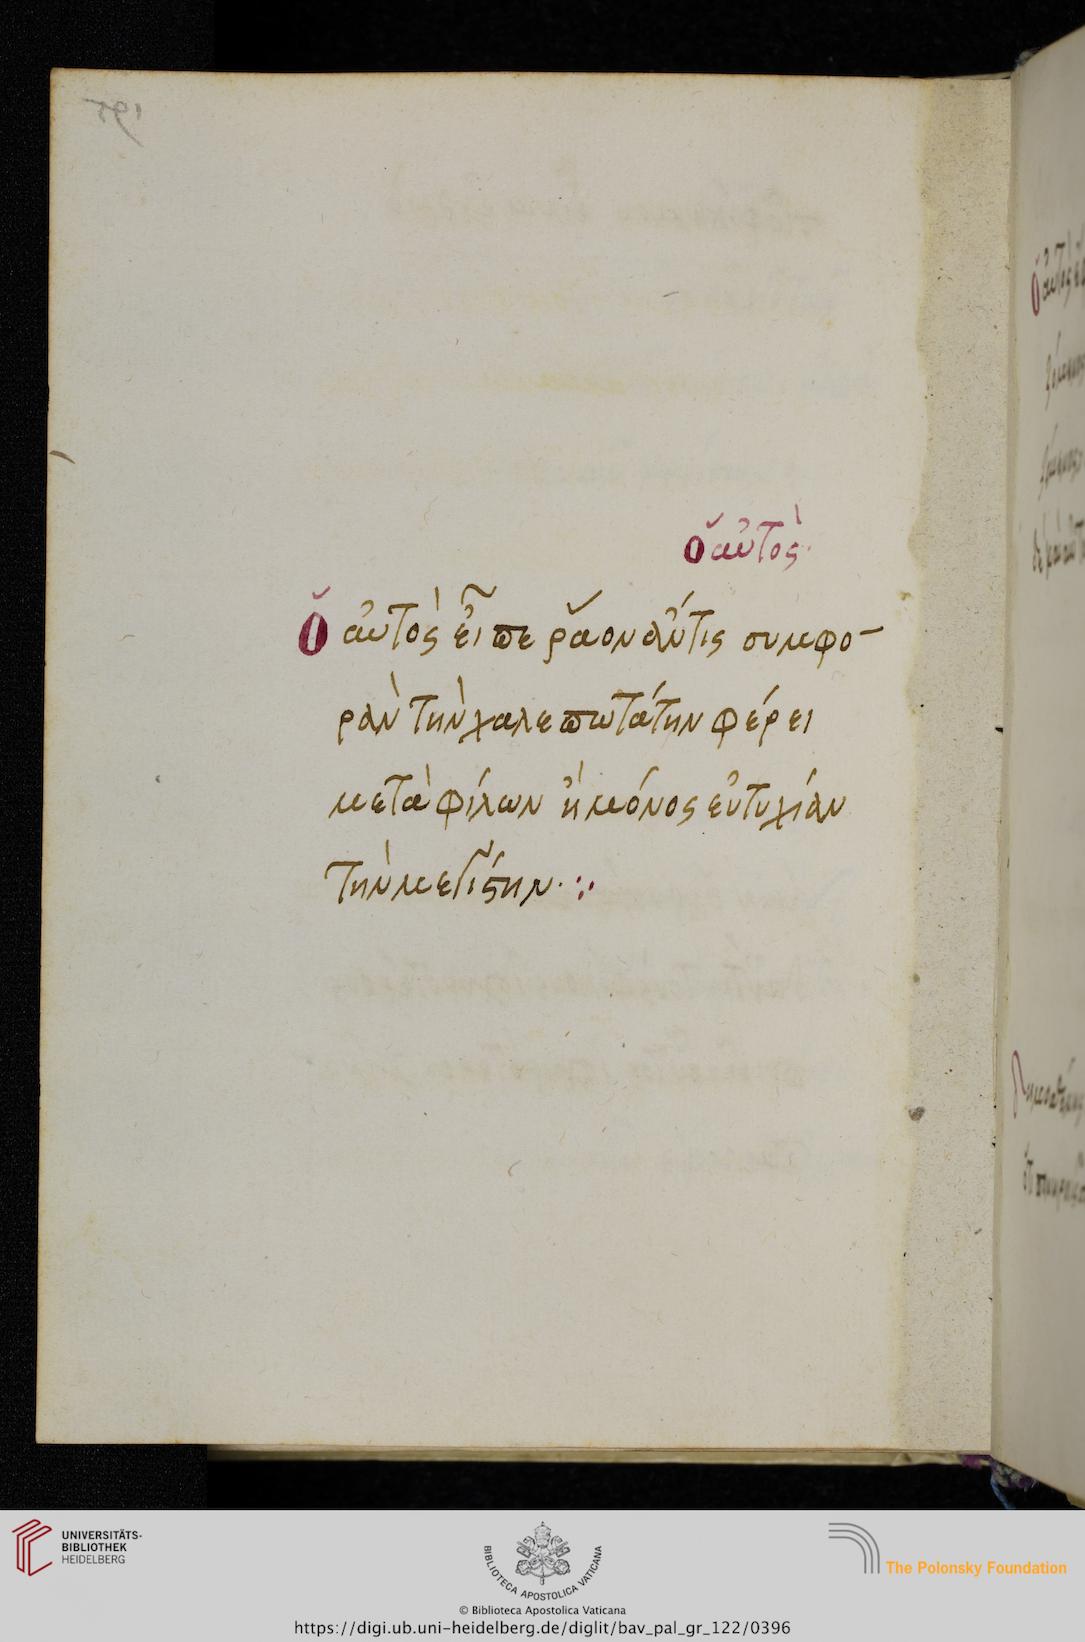 195
ὁ αὐτὸς·
Ὁ αὐτὸς εἶπε ρᾶον ἄν τις συμφο-
ρὰν τὴν χαλεπωτάτην φέρει
μετὰ φίλων ἢ μόνος εὐτυχίαν
τὴν μεγίστην· :·
UNIVERSITÄTS-
BIBLIOTHEK
HEIDELBERG
BIBLIOTECA APOSTOLICA VATICANA
The Polonsky Foundation
© Biblioteca Apostolica Vaticana
https://digi.ub.uni-heidelberg.de/diglit/bav_pal_gr_122/0396